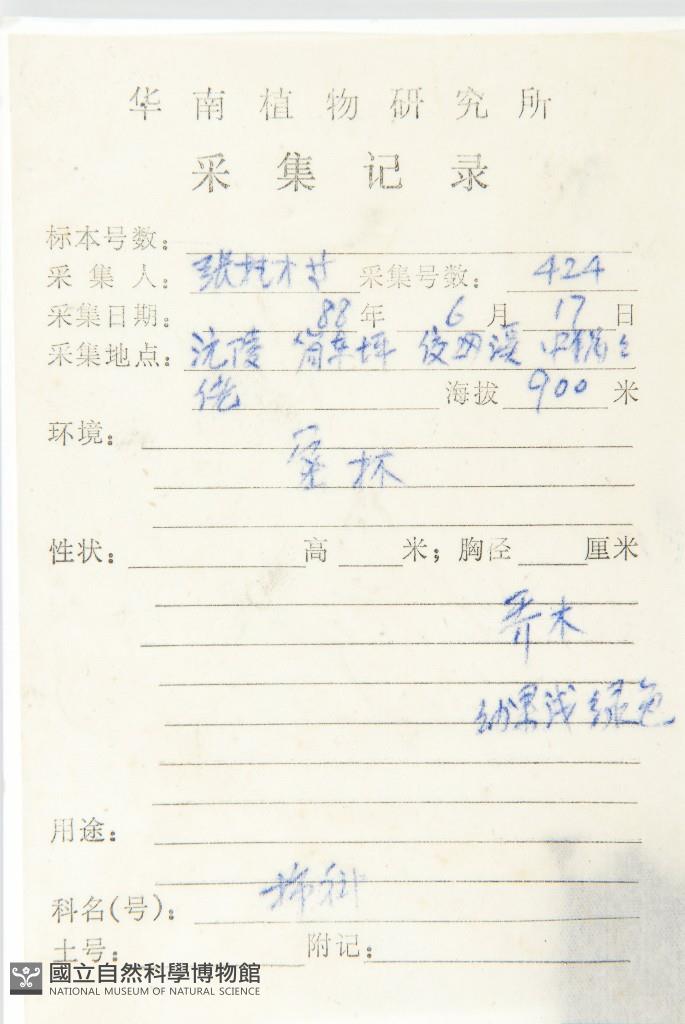 华南植物研究所
采集记录
标本号数：
采集人：張桂才 采集号数：424
采集日期：88年6月17日
采集地点：沅陵
海拔900米
环境：
林
性状：高米；胸径厘米
乔木
幼果浅绿色
用途：
科名(号)：科
土号： 附记：
國立自然科學博物館
NATIONAL MUSEUM OF NATURAL SCIENCE